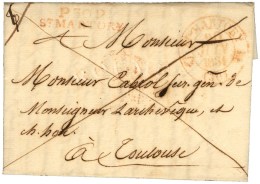 P.P.P.
ST MARTORY
à Monsieur
Monsieur gén. de
Monseigneur L'archevêque, et
ch. hon.
à Toulouse